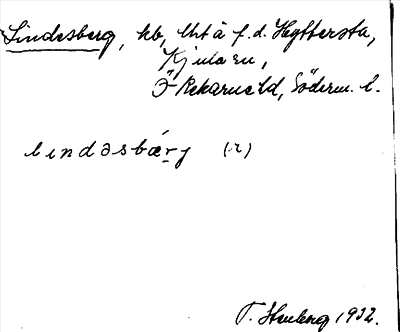 Lindesberg, hb, lht å f.d. Hyttersta,
Kjula sn,
Ö Rekarne hd, Söderm. l.
lındəsbærj (-z)
T. 1932.